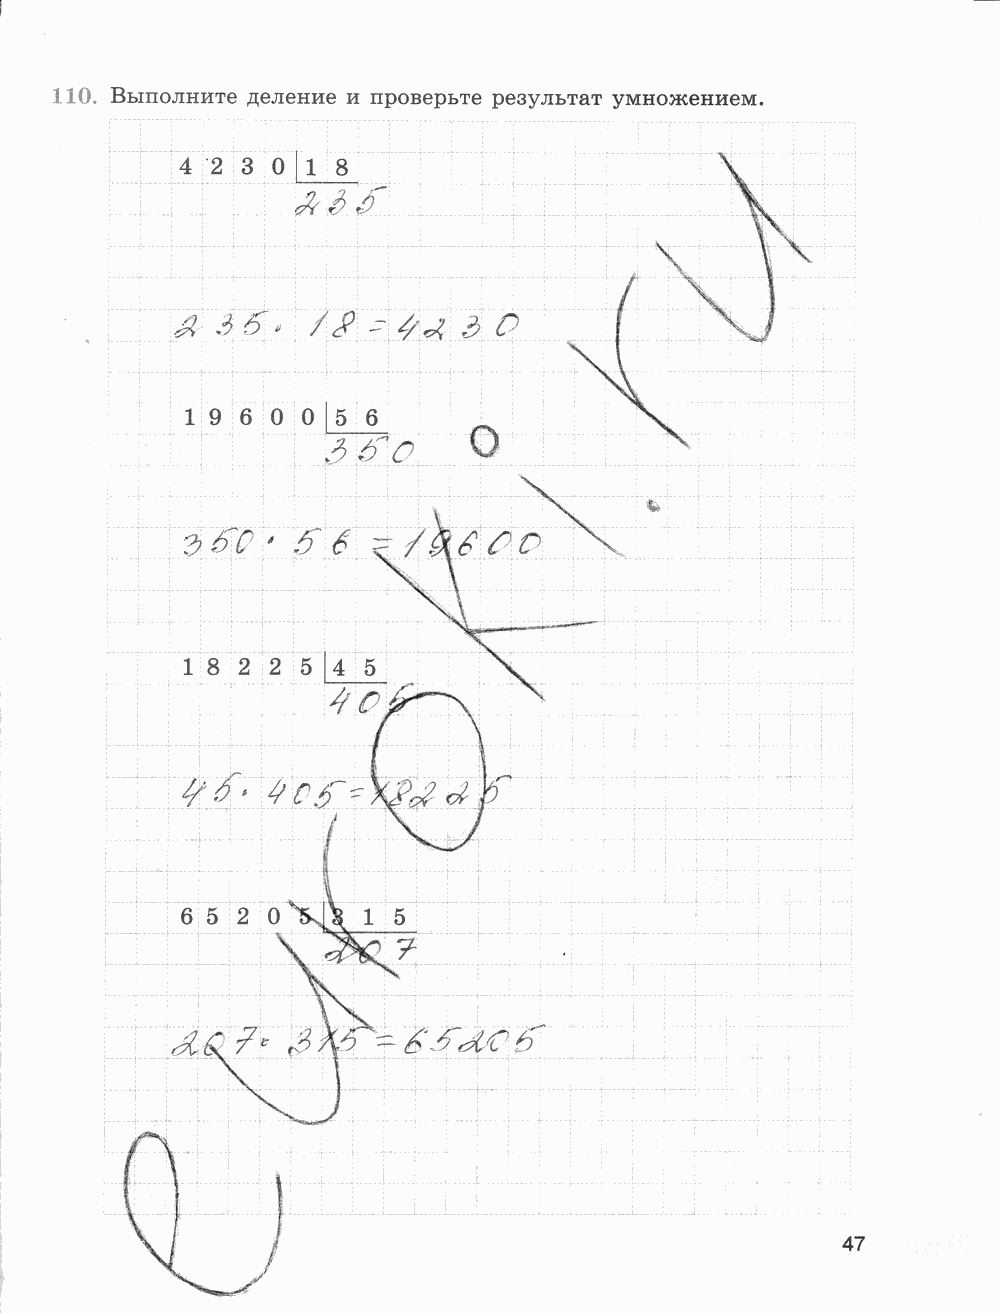 110. Выполните деление и проверьте результат умножением.
4 2 3 0 1 8
2 3 5
2 3 5 · 1 8 = 4 2 3 0
1 9 6 0 0 5 6
3 5 0
350 · 5 6 = 19600
1 8 2 2 5 4 5
4 0 5
45 · 405 = 18225
6 5 2 0 5 3 1 5
2 0 7
207 · 315 = 65205
eurokи.ru
47